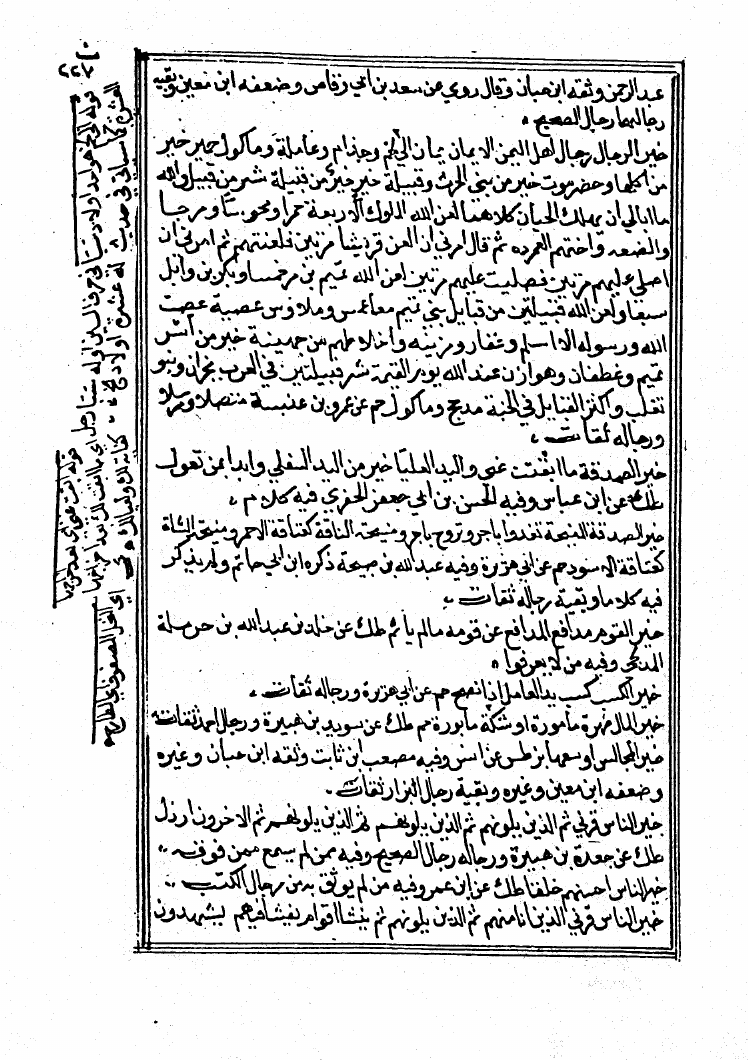 عبد الرحمن وثقه ابن حبان وقال روي عن سعد بن ابي وقاص وضعفه ابن معين وبقيه
رجالهما رجال الصحيح
خير الرجال رجال اهل اليمن الايمان يمان الى لخم وجذام وعاملة وماكول حمير خير
من اكلها وحضرموت خير من بني الحرث وقبيلة خير من قبيلة وقبيلة شر من قبيلة والله
ما ابالي ان يهلك الحيان كلاهما لعن الله الملوك الاربعة جمدا ومخوسا ومشرحا
وابضعه واختهم العمرده ثم قال امرني ان العن قريشا مرتين فلعنتهم ثم امرني ان
اصلي عليهم مرتين فصليت عليهم مرتين لعن الله تميم بن مر خمسا وبكر بن وائل
سبعا ولعن الله قبيلتين من قبايل بني تميم مقاعس وملادس عصية عصت
الله ورسوله الا اسلم وغفار ومزينه واخلاطهم من جهينة خير من اسد
تميم وغطفان وهوازن عند الله يوم القيمة شر قبيلتين في العرب نجران وبنو
تغلب واكثر القبايل في الجنة مذحج وماكول حم عن عمرو بن عنبسة متصلا ومرسلا
ورجاله ثقات
خير الصدقة ما ابقت غنى واليد العليا خير من اليد السفلي وابدا بمن تعول
طك عن ابن عباس وفيه الحسن بن ابي جعفر الجفري فيه كلام
خير الصدقة المنيحة تغدوا باجر وتروح باجر ومنيحة الناقة كعتاقة الاحمر ومنيحة الشاة
كعتاقة الاسود حم عن ابي هريرة وفيه عبد الله بن صبيحة ذكره ابن ابي حاتم ولم يذكر
فيه كلاما وبقية رجاله ثقات
خير القوم مدافع المدافع عن قومه ما لم يأثم طك عن خلد بن عبد الله بن حرملة
المدلجي وفيه من لا يعرفوا
خير الكسب كسب يد العامل اذا نصح حم عن ابي هريرة ورجاله ثقات
خير المال مهرة مأمورة او سكة مابورة حم طك عن سويد بن هبيرة ورجال احمد ثقات
خير المجالس اوسعها بز طس عن انس وفيه مصعب ابن ثابت وثقه ابن حبان وغيره
وضعفه ابن معين وغيره وبقية رجال البزار ثقات
خير الناس قرني ثم الذين يلونهم ثم الذين يلونهم ثم الذين يلونهم ثم الاخرون ارذل
طك عن جعدة بن هبيرة ورجاله رجال الصحيح وفيه ممن لم يسمع ممن فوقه
خير الناس احسنهم خلقا طك عن ابن عمر وفيه من لم يوثق به من رجال الكتب
خير الناس قرني الذين انا منهم ثم الذين يلونهم ثم ينشا اقوام يفشا فيهم يشهدون
٢٢٧